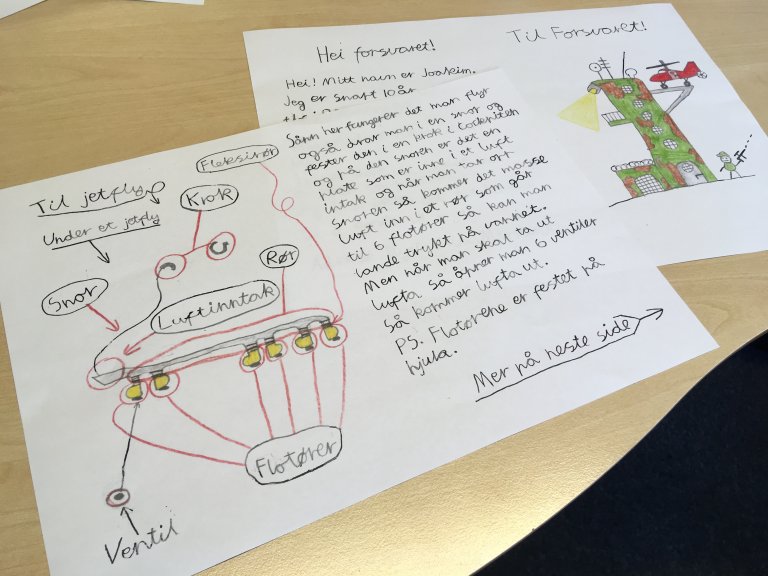 Til Forsvaret!
Hei forsvaret!
Hei! Mitt navn er Joakim.
Jeg er snart 10 år
Til jetfly
Under et jetfly
Snor
Krok
Fleksirør
Rør
Luftinntak
Flotører
Ventil
Sånn her fungerer det man flyr
også drar man i en snor og
fester den i en krok i Cockpitten
og på den snoren er det en
plate som er inre i et luft
intak og når man tar
snoren så kommer det masse
luft inn i et rør som går
til 6 flotører så kan man
lande trykt på vannet.
Men når man skal ta ut
lufta så åpner man 6 ventiler
så kommer lufta ut.
PS. Flotørene er festet på
hjula.
Mer på neste side